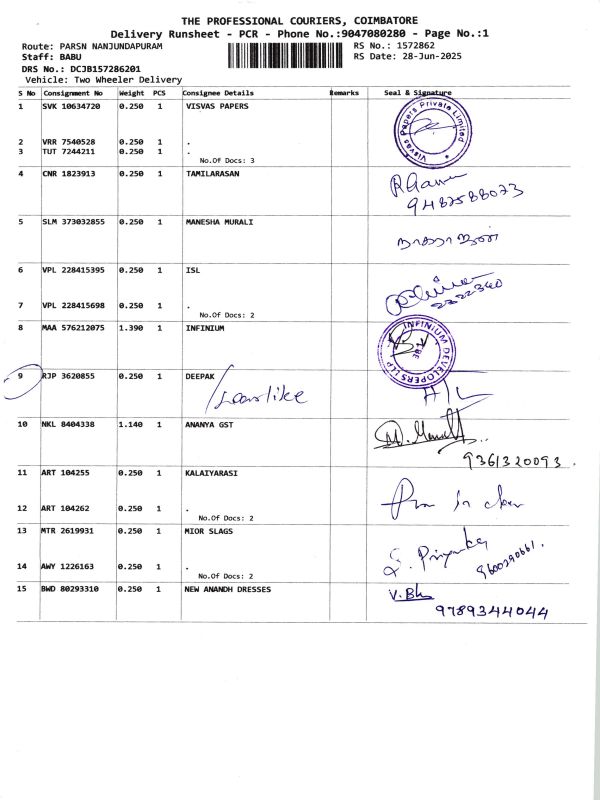 THE PROFESSIONAL COURIERS, COIMBATORE
Delivery Runsheet - PCR - Phone No.:9047080280 - Page No.:1
Route: PARSN NANJUNDAPURAM RS No.: 1572862
Staff: BABU RS Date: 28-Jun-2025
DRS No.: DCJB157286201
Vehicle: Two Wheeler Delivery
S No Consignment No Weight PCS Consignee Details Remarks Seal & Signature
1 SVK 10634720 0.250 1 VISVAS PAPERS
Visvas Papers Private Limited
2 VRR 7540528 0.250 1 .
3 TUT 7244211 0.250 1 .
No.Of Docs: 3
4 CNR 1823913 0.250 1 TAMILARASAN
9487588073
5 SLM 373032855 0.250 1 MANESHA MURALI
6 VPL 228415395 0.250 1 ISL
2322340
7 VPL 228415698 0.250 1 .
No.Of Docs: 2
8 MAA 576212075 1.390 1 INFINIUM
INFINIUM DEVELOPERS LLP
9 RJP 3620855 0.250 1 DEEPAK
10 NKL 8404338 1.140 1 ANANYA GST
9361320093.
11 ART 104255 0.250 1 KALAIYARASI
12 ART 104262 0.250 1 .
No.Of Docs: 2
13 MTR 2619931 0.250 1 MIOR SLAGS
S. Priyanka
9600290661.
14 AWY 1226163 0.250 1 .
No.Of Docs: 2
15 BWD 80293310 0.250 1 NEW ANANDH DRESSES
9789344044